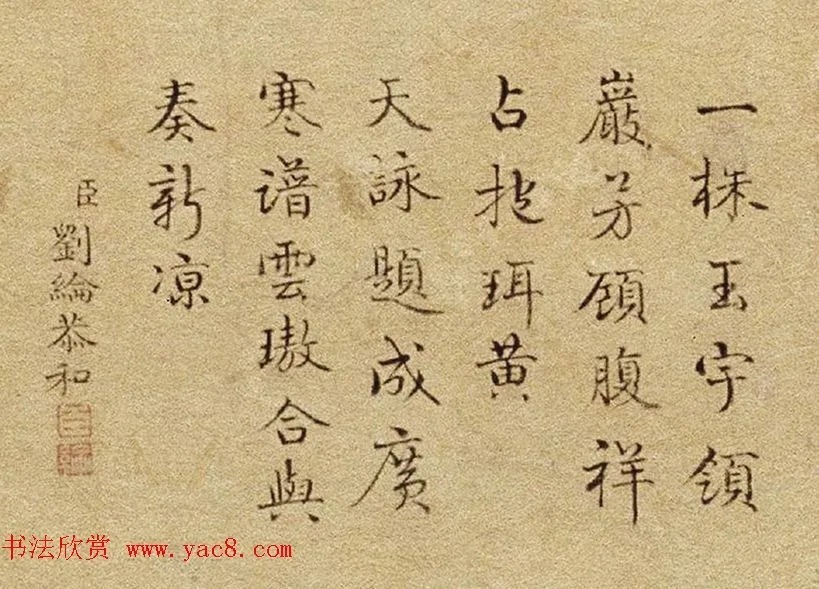 一株玉宇領
巖芳顧腹祥
占抱珥黄
天詠題成廣
寒譜雲璈合與
奏新凉
臣劉綸恭和
书法欣赏 www.yac8.com